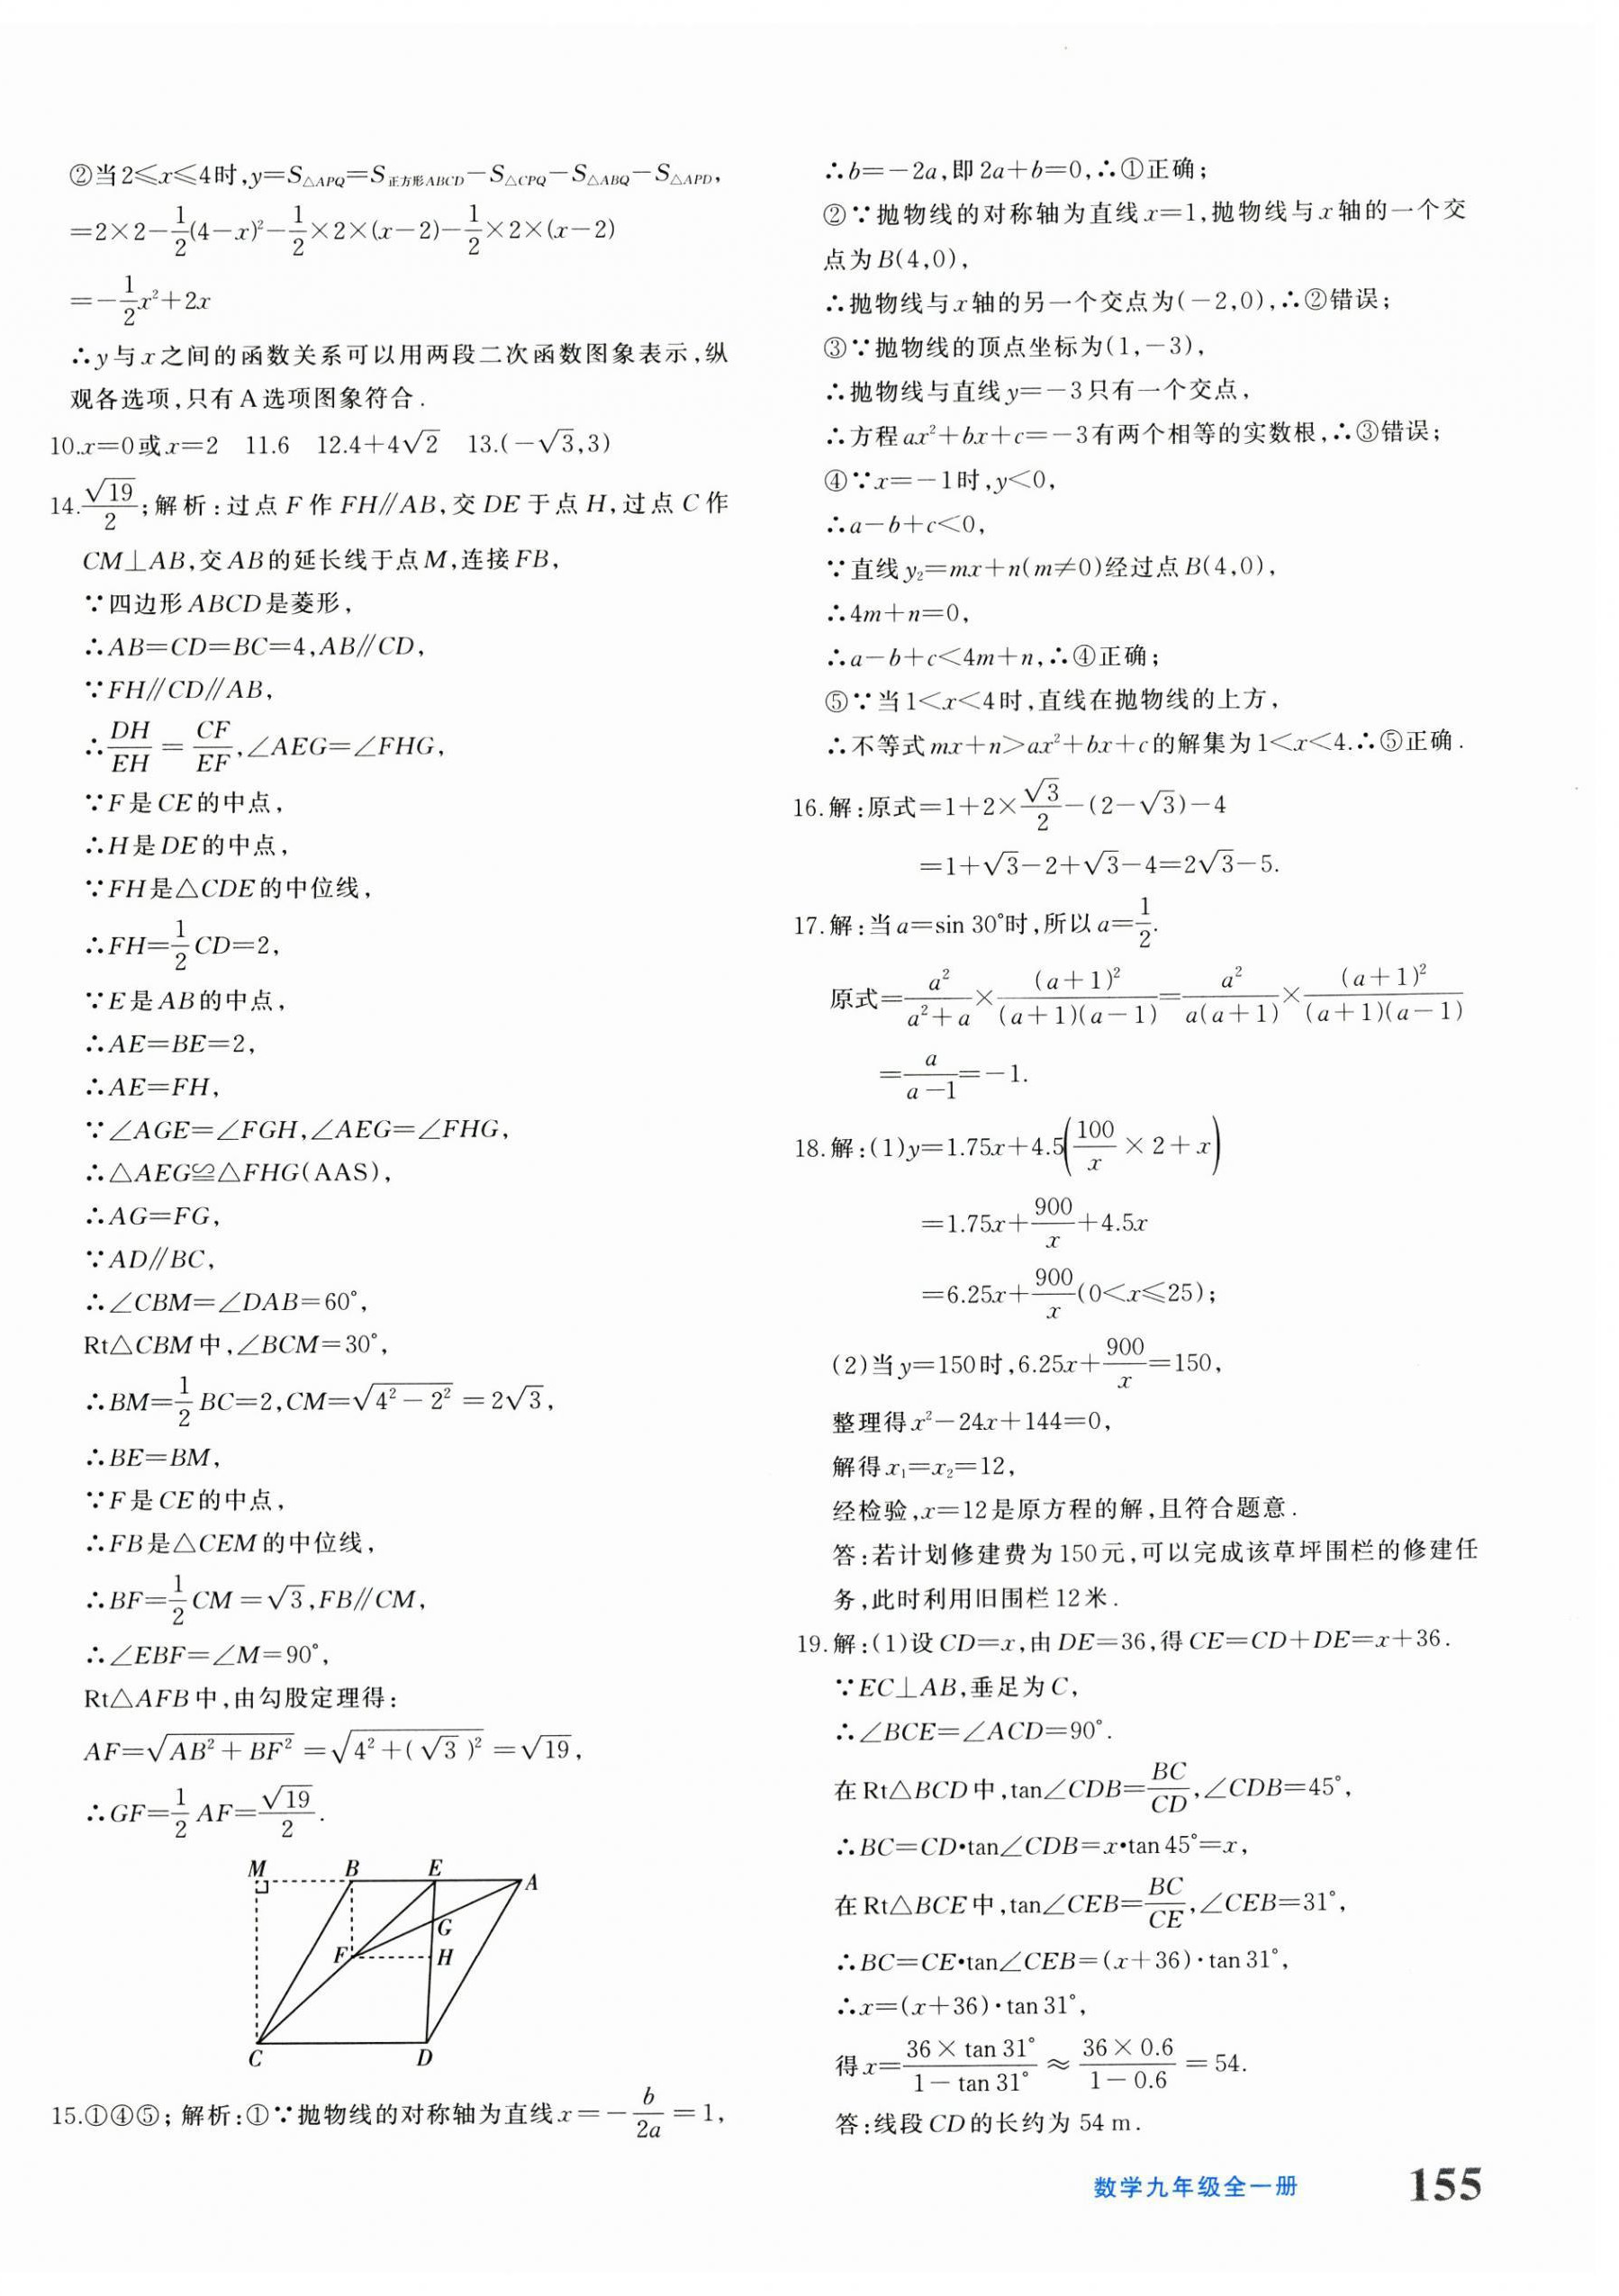 ②当2≤x≤4时,y=S△APQ=S正方形ABCD-S△CPQ-S△ABQ-S△APD,
=2×2-\frac{1}{2}(4-x)²-\frac{1}{2}×2×(x-2)-\frac{1}{2}×2×(x-2)
=-\frac{1}{2}x²+2x
∴y与x之间的函数关系可以用两段二次函数图象表示,纵
观各选项,只有A选项图象符合.
10.x=0或x=2 11.6 12.4+4√2 13.(-√3,3)
14.\frac{√19}{2};解析:过点F作FH∥AB,交DE于点H,过点C作
CM⊥AB,交AB的延长线于点M,连接FB,
∵四边形ABCD是菱形,
∴AB=CD=BC=4,AB∥CD,
∵FH∥CD∥AB,
∴\frac{DH}{EH}=\frac{CF}{EF},∠AEG=∠FHG,
∵F是CE的中点,
∴H是DE的中点,
∵FH是△CDE的中位线,
∴FH=\frac{1}{2}CD=2,
∵E是AB的中点,
∴AE=BE=2,
∴AE=FH,
∵∠AGE=∠FGH,∠AEG=∠FHG,
∴△AEG≌△FHG(AAS),
∴AG=FG,
∵AD∥BC,
∴∠CBM=∠DAB=60°,
Rt△CBM中,∠BCM=30°,
∴BM=\frac{1}{2}BC=2,CM=\sqrt{4²-2²}=2√3,
∴BE=BM,
∵F是CE的中点,
∴FB是△CEM的中位线,
∴BF=\frac{1}{2}CM=√3,FB∥CM,
∴∠EBF=∠M=90°,
Rt△AFB中,由勾股定理得:
AF=\sqrt{AB²+BF²}=\sqrt{4²+(√3)²}=√19,
∴GF=\frac{1}{2}AF=\frac{√19}{2}.
M B E A
G
F H
C D
15.①④⑤;解析:①∵抛物线的对称轴为直线x=-\frac{b}{2a}=1,
∴b=-2a,即2a+b=0,∴①正确;
②∵抛物线的对称轴为直线x=1,抛物线与x轴的一个交
点为B(4,0),
∴抛物线与x轴的另一个交点为(-2,0),∴②错误;
③∵抛物线的顶点坐标为(1,-3),
∴抛物线与直线y=-3只有一个交点,
∴方程ax²+bx+c=-3有两个相等的实数根,∴③错误;
④∵x=-1时,y<0,
∴a-b+c<0,
∵直线y₂=mx+n(m≠0)经过点B(4,0),
∴4m+n=0,
∴a-b+c<4m+n,∴④正确;
⑤∵当1<x<4时,直线在抛物线的上方,
∴不等式mx+n>ax²+bx+c的解集为1<x<4.∴⑤正确.
16.解:原式=1+2×\frac{√3}{2}-(2-√3)-4
=1+√3-2+√3-4=2√3-5.
17.解:当a=sin 30°时,所以a=\frac{1}{2}.
原式=\frac{a²}{a²+a}×\frac{(a+1)²}{(a+1)(a-1)}=\frac{a²}{a(a+1)}×\frac{(a+1)²}{(a+1)(a-1)}
=\frac{a}{a-1}=-1.
18.解:(1)y=1.75x+4.5(\frac{100}{x}×2+x)
=1.75x+\frac{900}{x}+4.5x
=6.25x+\frac{900}{x}(0<x≤25);
(2)当y=150时,6.25x+\frac{900}{x}=150,
整理得x²-24x+144=0,
解得x₁=x₂=12,
经检验,x=12是原方程的解,且符合题意.
答:若计划修建费为150元,可以完成该草坪围栏的修建任
务,此时利用旧围栏12米.
19.解:(1)设CD=x,由DE=36,得CE=CD+DE=x+36.
∵EC⊥AB,垂足为C,
∴∠BCE=∠ACD=90°.
在Rt△BCD中,tan∠CDB=\frac{BC}{CD},∠CDB=45°,
∴BC=CD•tan∠CDB=x•tan 45°=x,
在Rt△BCE中,tan∠CEB=\frac{BC}{CE},∠CEB=31°,
∴BC=CE•tan∠CEB=(x+36)·tan 31°,
∴x=(x+36)·tan 31°,
得x=\frac{36×tan 31°}{1-tan 31°}≈\frac{36×0.6}{1-0.6}=54.
答:线段CD的长约为54 m.
数学九年级全一册 155